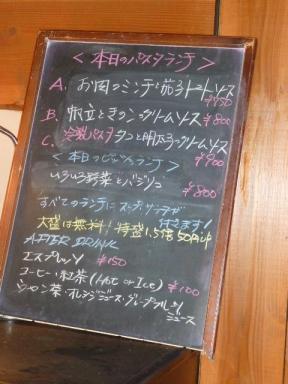 <本日のパスタランチ>
A. お肉のミンチと茄子トマトソース
¥750
B. 帆立ときのこクリームソース ¥800
C. 冷製パスタ タコと明太子クリームソース
¥900
<本日のピザランチ>
いろいろ野菜とバジリコ
¥800
すべてのランチにスープ・サラダが
付きます!
大盛は無料! 特盛1.5倍 50円UP
AFTER DRINK
エスプレッソ ¥150
コーヒー・紅茶 (Hot or Ice) ¥100
ジャスミン茶・オレンジジュース・グレープフルーツ
ジュース